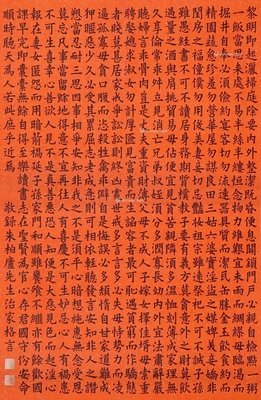 黎明即起灑掃庭除要內外整潔既昏便息關鎖門戶必親自檢點一粥
一飯當思來處不易半絲半縷恒念物力維艱宜未雨而綢繆毋臨渴而
掘井自奉必須儉約宴客切勿留連器具質而潔瓦缶勝金玉飲食約而
精園蔬愈珍饈勿營華屋勿謀良田三姑六婆實淫盜之媒婢美妾嬌非
閨房之福僮僕勿用俊美妻妾切忌艷妝祖宗雖遠祭祀不可不誠子孫
雖愚經書不可不讀居身務期質樸教子要有義方莫貪意外之財莫飲
過量之酒與肩挑貿易毋佔便宜見貧苦親鄰須多溫恤刻薄成家理無
久享倫常乖舛立見消亡兄弟叔姪須分多潤寡長幼內外宜法肅辭嚴
聽婦言乖骨肉豈是丈夫重貲財薄父母不成人子嫁女擇佳婿毋索重
聘娶媳求淑女勿計厚奩見富貴而生諂容者最可恥遇貧窮而作驕態
者賤莫甚居家戒爭訟訟則終凶處世戒多言言多必失毋恃勢力而凌
逼孤寡毋貪口腹而恣殺牲禽乖僻自是悔誤必多頹惰自甘家道難成
狎暱惡少久必受其累屈志老成急則可相依輕聽發言安知非人之譖
愬當忍耐三思因事相爭安知非我之不是須平心暗想施惠無念受恩
莫忘凡事當留餘地得意不宜再往人有喜慶不可生妒忌心人有禍患
不可生喜幸心善欲人見不是真善惡恐人知便是大惡見色而起淫心
報在妻女匿怨而用暗箭禍延子孫家門和順雖饔飧不繼亦有餘歡國
課早完即囊橐無餘自得至樂讀書志在聖賢為官心存君國守分安命
順時聽天為人若此庶乎近焉 敬錄朱柏廬先生治家格言